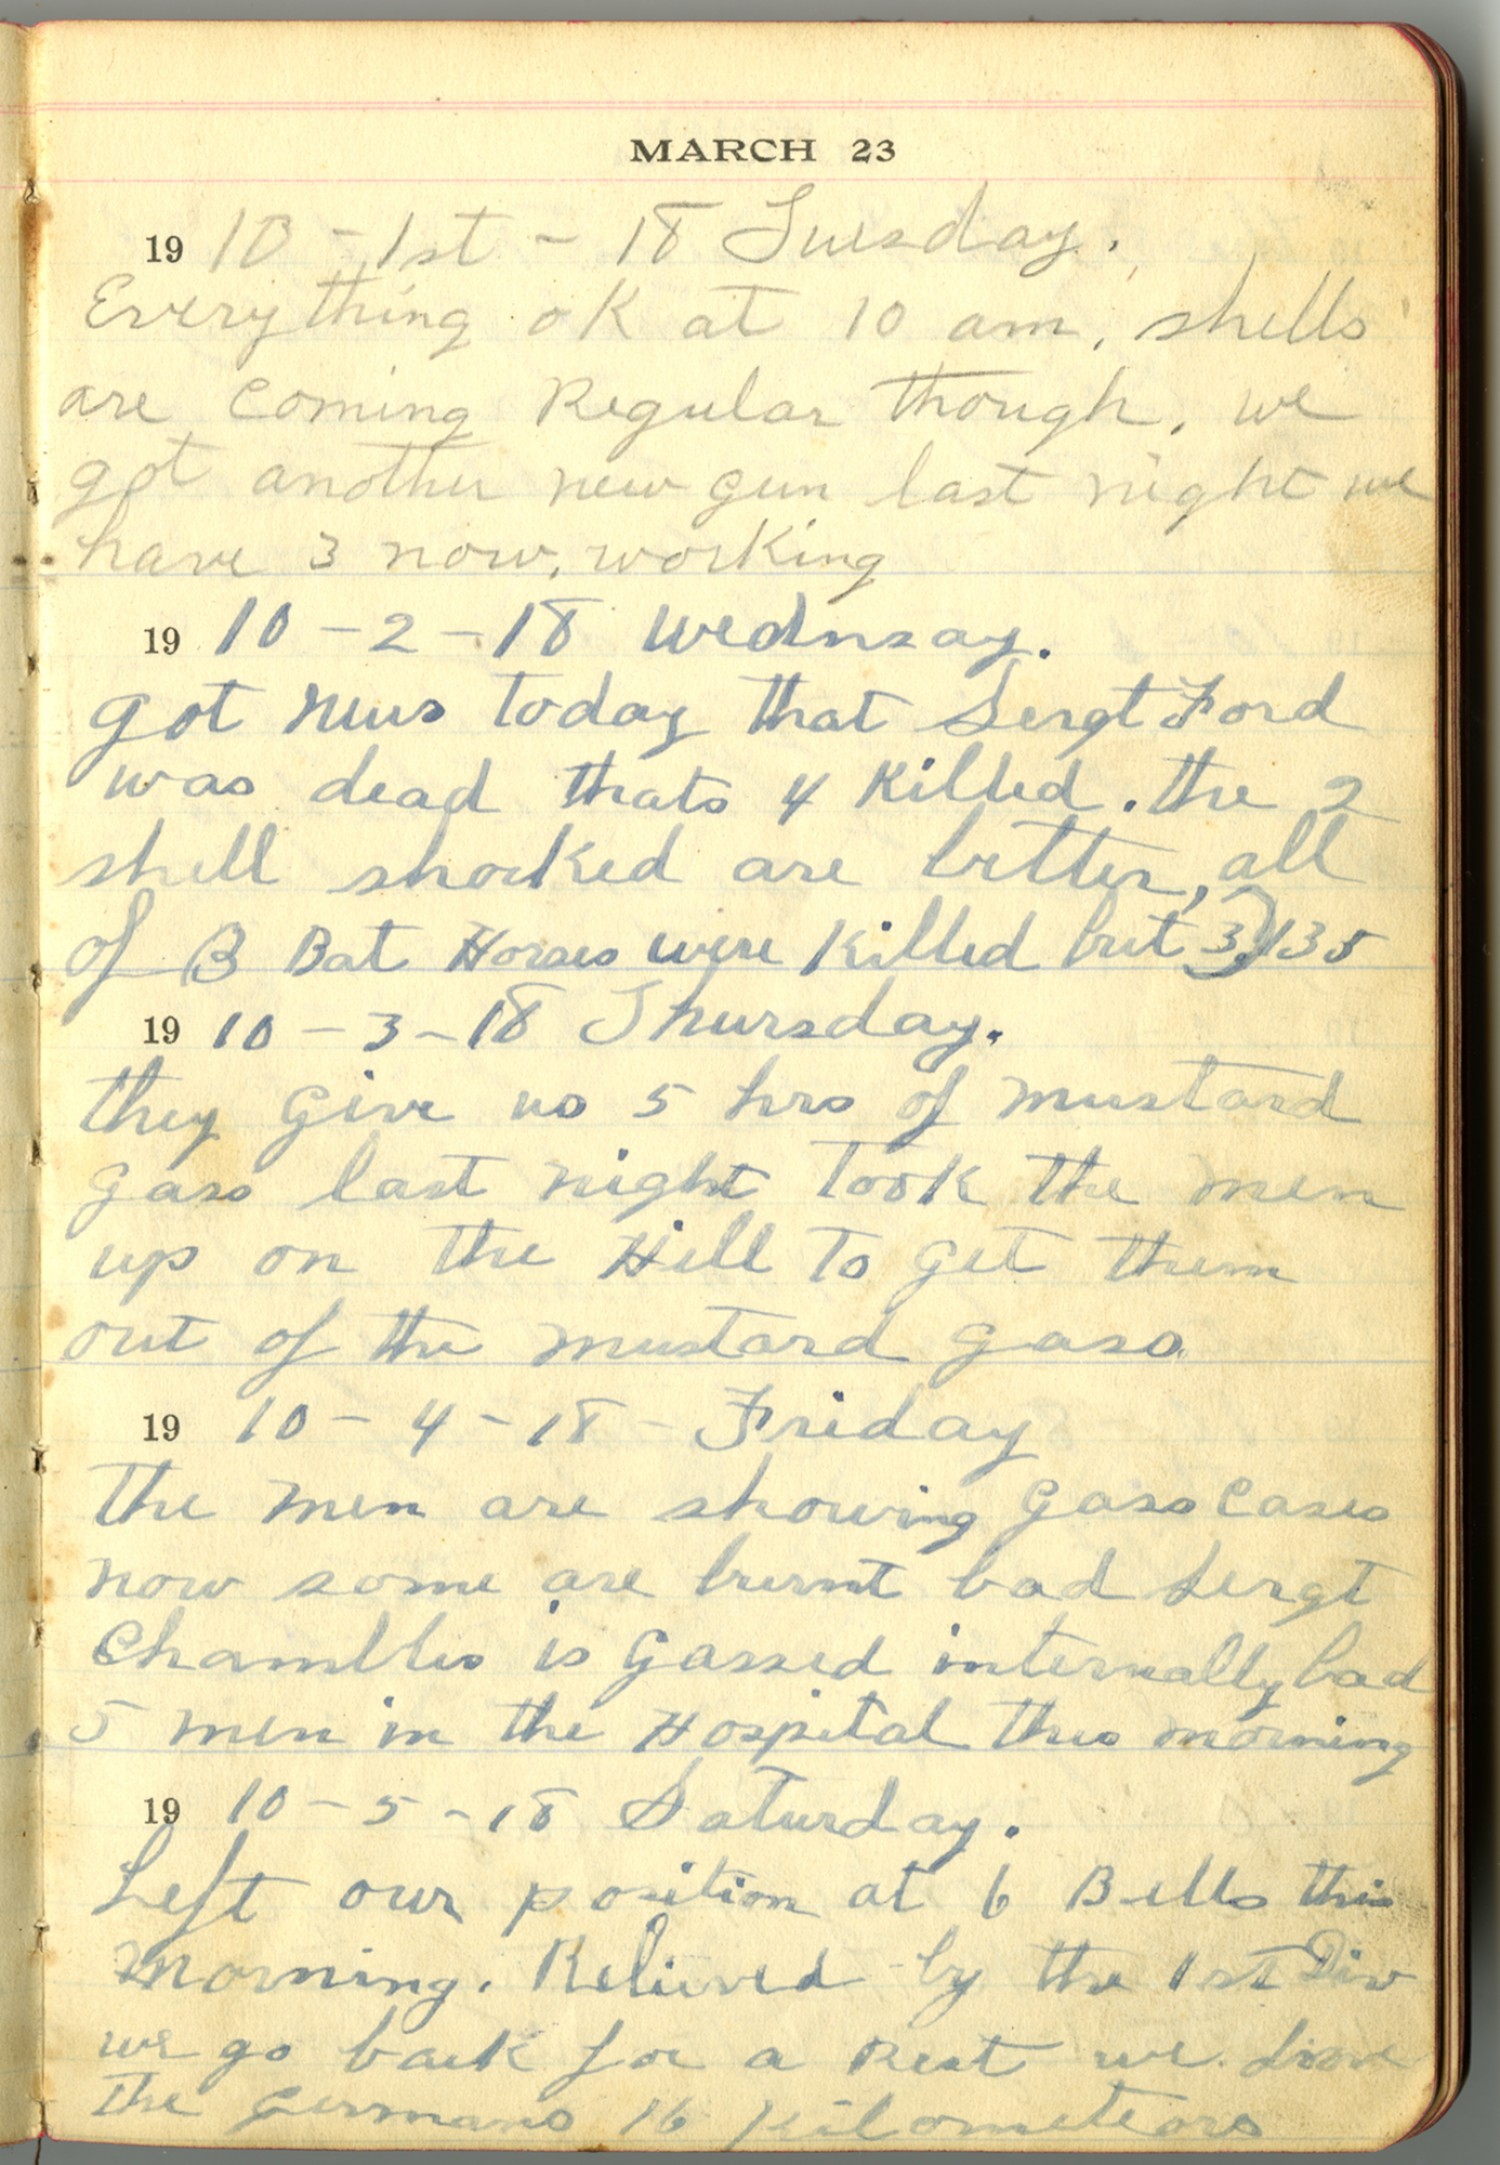 MARCH 23
19 10-1st-18 Tuesday.
Everything OK at 10 am, shells
are coming Regular though, we
got another new gun last night we
have 3 now, working
19 10-2-18 Wednsay.
got news today that Sergt Ford
was dead thats 4 Killed. the 2
shell shocked are better, all
of B Bat Horses were Killed but 3, 135
19 10-3-18 Thursday.
they Give us 5 hrs of mustard
gass last night Took the men
up on the Hill To get them
out of the mustard gass.
19 10-4-18-Friday
The men are showing gass cases
now some are burnt bad Sergt
Chambles is Gassed internally bad
5 men in the Hospital this morning
19 10-5-18 Saturday.
Left our position at 6 Bells this
morning. Relieved by the 1st Div
we go back for a Rest we drove
The germans 16 Kilometers